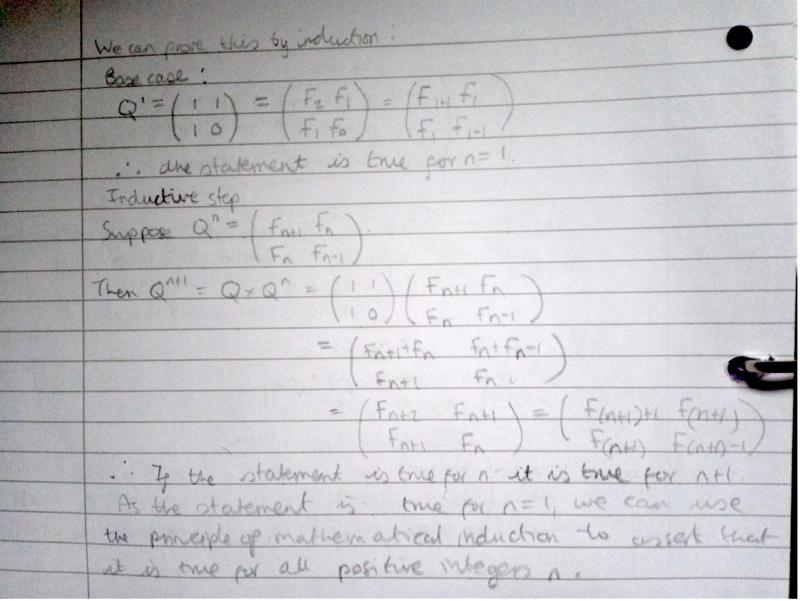 We can prove this by induction:
Base case:
Q¹ = (1 1 / 1 0) = (F₂ F₁ / F₁ F₀) = (F₁₊₁ F₁ / F₁ F₁₋₁)
∴ the statement is true for n=1.
Inductive step
Suppose Qⁿ = (Fₙ₊₁ Fₙ / Fₙ Fₙ₋₁).
Then Qⁿ⁺¹ = Q × Qⁿ = (1 1 / 1 0) (Fₙ₊₁ Fₙ / Fₙ Fₙ₋₁)
= (Fₙ₊₁+Fₙ Fₙ+Fₙ₋₁ / Fₙ₊₁ Fₙ)
= (Fₙ₊₂ Fₙ₊₁ / Fₙ₊₁ Fₙ) = (F₍ₙ₊₁₎₊₁ F₍ₙ₊₁₎ / F₍ₙ₊₁₎ F₍ₙ₊₁₎₋₁)
∴ If the statement is true for n it is true for n+1.
As the statement is true for n=1, we can use
the principle of mathematical induction to assert that
it is true for all positive integers n.